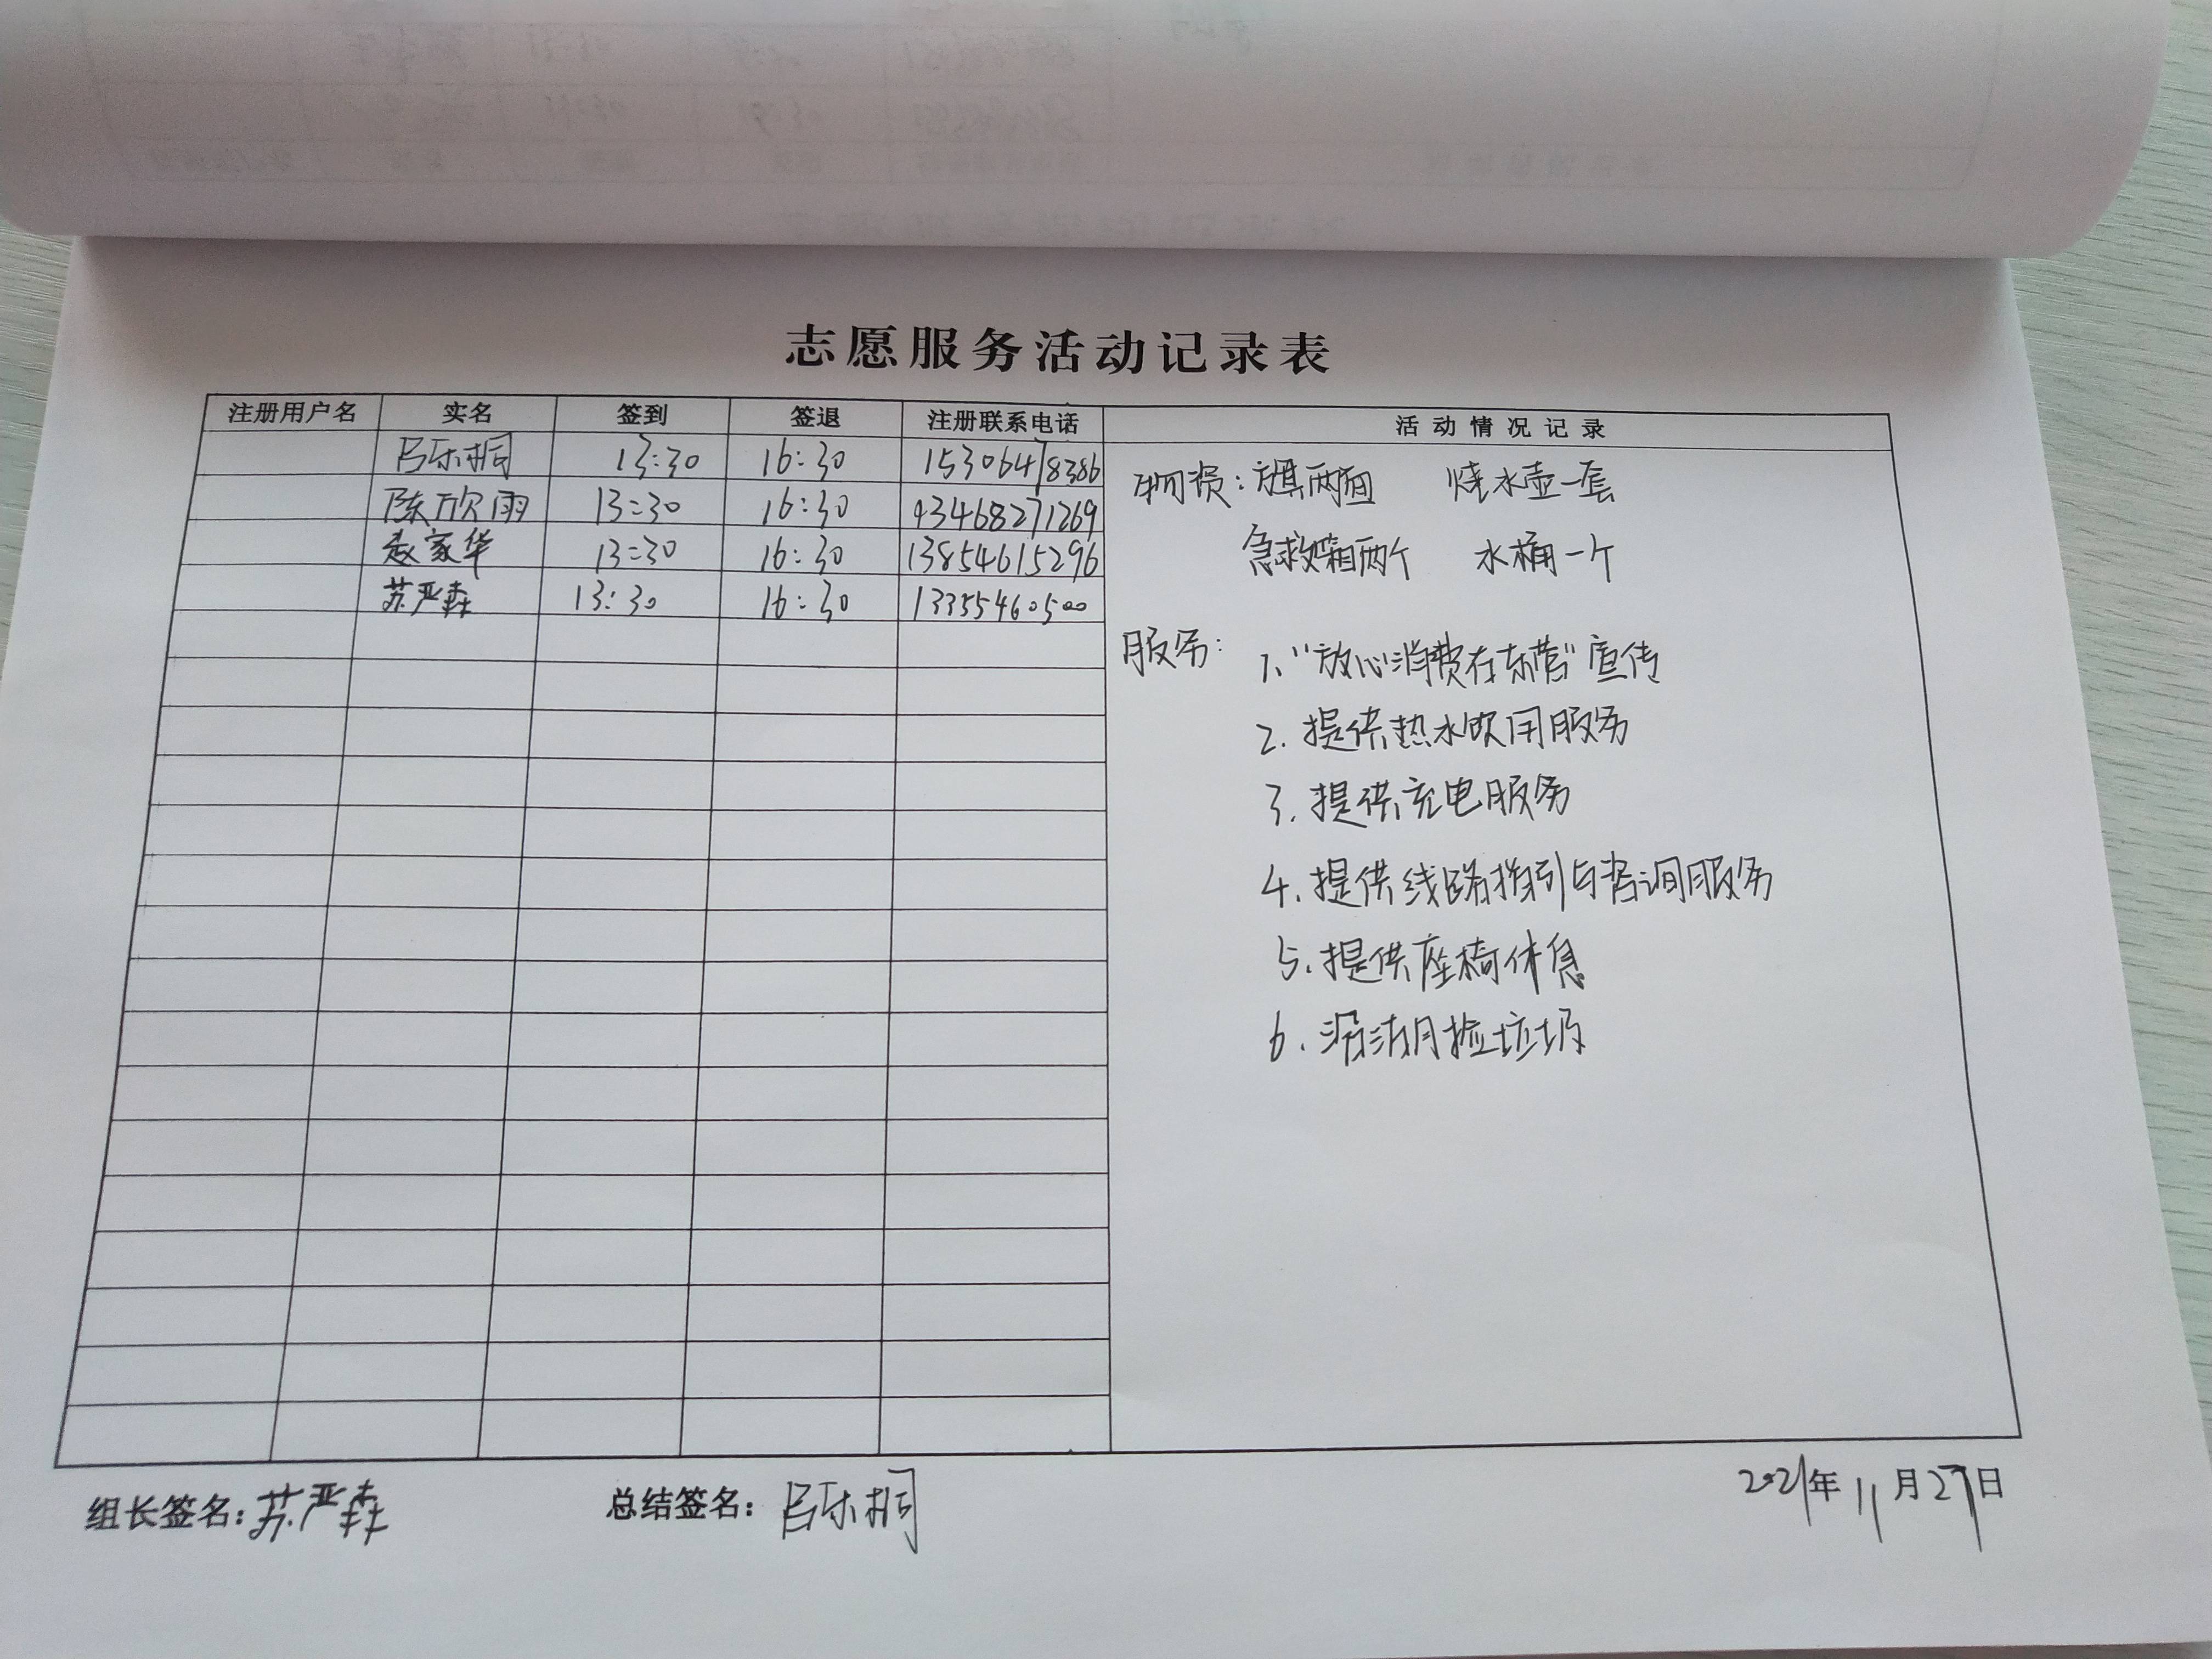 志愿服务活动记录表
注册用户名 实名 签到 签退 注册联系电话 活动情况记录
吕乐桐 13:30 16:30 15306478386
陈欣雨 13:30 16:30 13468271269
赵家华 13:30 16:30 13854615296
苏严森 13:30 16:30 13355460500
物资：旗两面 烧水壶一套
急救箱两个 水桶一个
服务：1、“放心消费在东营”宣传
2. 提供热水饮用服务
3. 提供充电服务
4. 提供线路指引与咨询服务
5. 提供座椅休息
6. 沿湖捡垃圾
组长签名：苏严森 总结签名：吕乐桐 2021年11月27日